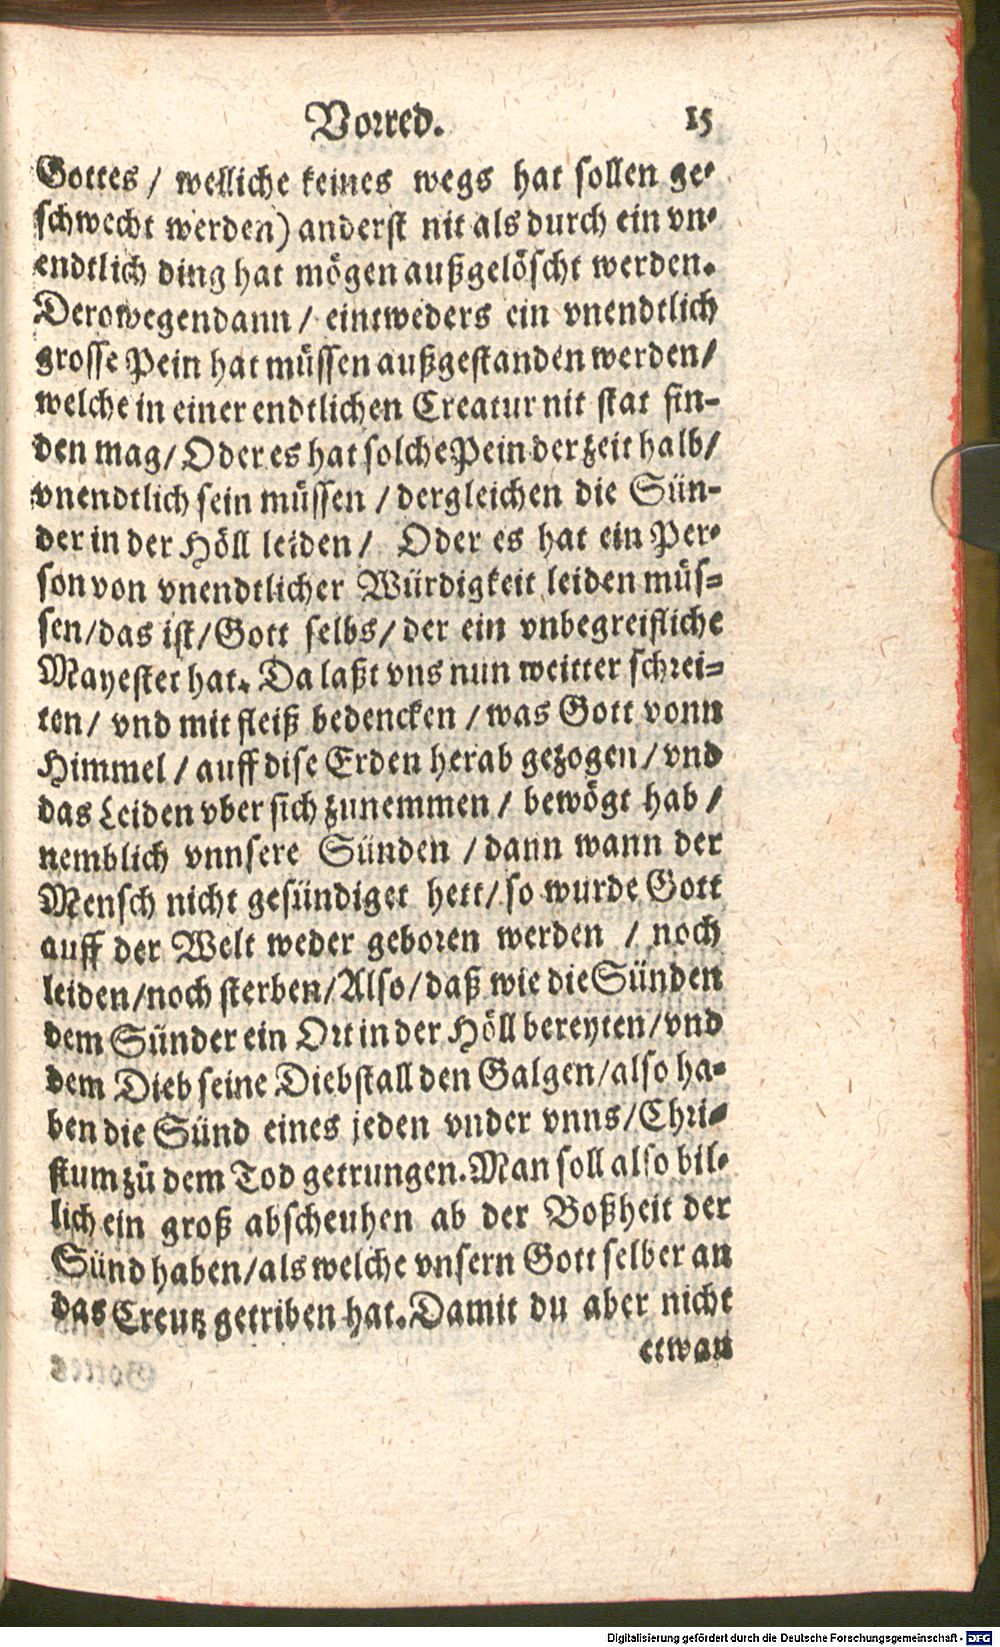 Vorred. 15
Gottes / welliche keines wegs hat sollen ge-
schwecht werden) anderst nit als durch ein vn-
endtlich ding hat mögen außgelöscht werden.
Derowegen dann / eintweders ein vnendtlich
grosse Pein hat müssen außgestanden werden /
welche in einer endtlichen Creatur nit stat fin-
den mag / Oder es hat solche Pein der zeit halb /
vnendtlich sein müssen / dergleichen die Sün-
der in der Höll leiden / Oder es hat ein Per-
son von vnendtlicher Würdigkeit leiden müs-
sen / das ist / Gott selbs / der ein vnbegreifliche
Mayestet hat. Da laßt vns nun weitter schrei-
ten / vnd mit fleiß bedencken / was Gott vonn
Himmel / auff dise Erden herab gezogen / vnd
das Leiden vber sich zunemmen / bewögt hab /
nemblich vnnsere Sünden / dann wann der
Mensch nicht gesündiget hett / so wurde Gott
auff der Welt weder geboren werden / noch
leiden / noch sterben / Also / daß wie die Sünden
dem Sünder ein Ort in der Höll bereyten / vnd
dem Dieb seine Diebstall den Galgen / also ha-
ben die Sünd eines jeden vnder vnns / Chri-
stum zů dem Tod getrungen. Man soll also bil-
lich ein groß abscheuhen ab der Boßheit der
Sünd haben / als welche vnsern Gott selber an
das Creutz getriben hat. Damit du aber nicht
etwan
Digitalisierung gefördert durch die Deutsche Forschungsgemeinschaft - DFG